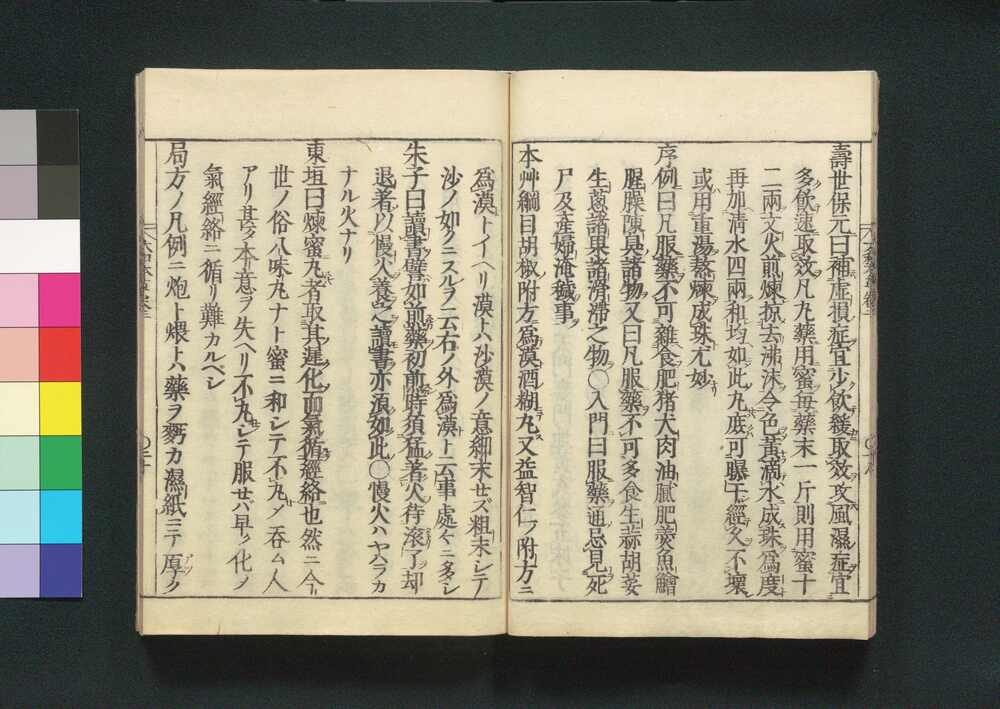 壽世保元曰補虚損症宜少飲緩取效攻風濕症宜
多飲速取效凡丸藥用蜜毎藥末一斤則用蜜十
二兩文火煎煉掠去沸沫令色黃滴水成珠爲度
再加清水四兩和均如此丸庶可曝乾經久不壞
或用重湯蒸煉成珠尤妙
序例曰凡服藥不可雜食肥猪犬肉油膩肥羮魚鱠
腥臊陳臭諸物又曰凡服藥不可多食生蒜胡荽
生蔥諸果諸滑滯之物〇入門曰服藥通忌見死
尸及產婦淹穢事
本艸綱目胡椒附方爲漠酒糊丸又益智仁ノ附方ニ
爲漠トイヘリ漠ハ沙漠ノ意細末セズ粗末ノシテ
沙ノ如クニスルヲ云右ノ外爲漠ト云事處々ニ多シ
朱子曰讀書譬如煎藥初煎時須猛著火待滾了却
退著以慢火養之讀書亦須如此〇慢火ハヤハラカ
ナル火ナリ
東垣曰煉蜜丸者取其遲化而氣循經絡也然ニ今
世ノ俗八味丸ナト蜜ニ和シテ不丸ノ呑ム人
アリ甚タ本意ヲ失ヘリ不丸シテ服セバ早ク化ノ
氣經絡ニ循リ難カルベシ
局方ノ凡例ニ炮ト煨トハ藥ヲ麪カ濕紙ニテ厚ク